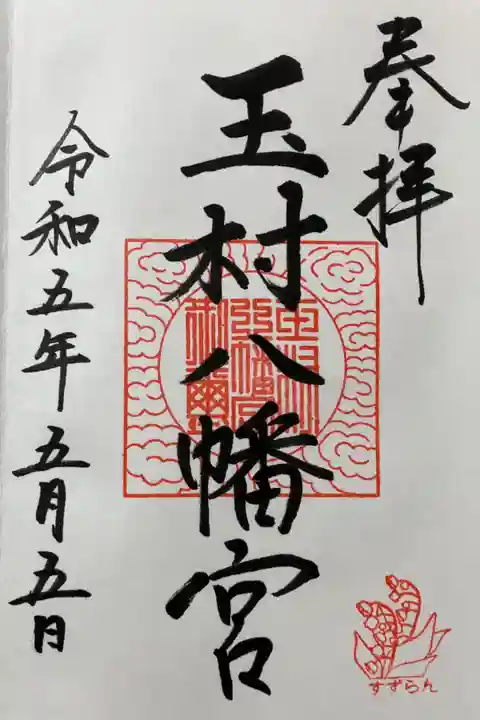 奉拝
玉村八幡宮
令和五年五月五日
すずらん